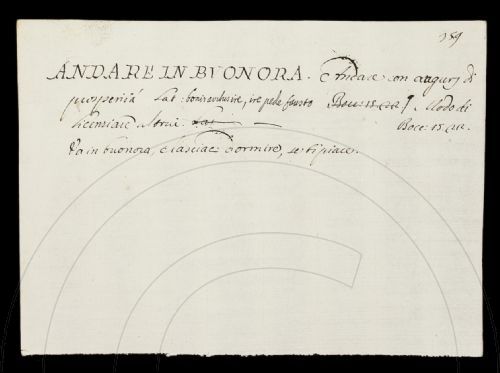 189
ANDARE IN BVONORA. È Andare con augurj di
prosperità Lat. bonis avibus ire, ire pede fausto Bocc: 15. 22. ¶ Modo di
licenziare altrui. Bocc: 15. 22.
Va in buonora, e lasciaci dormire, se ti piace.